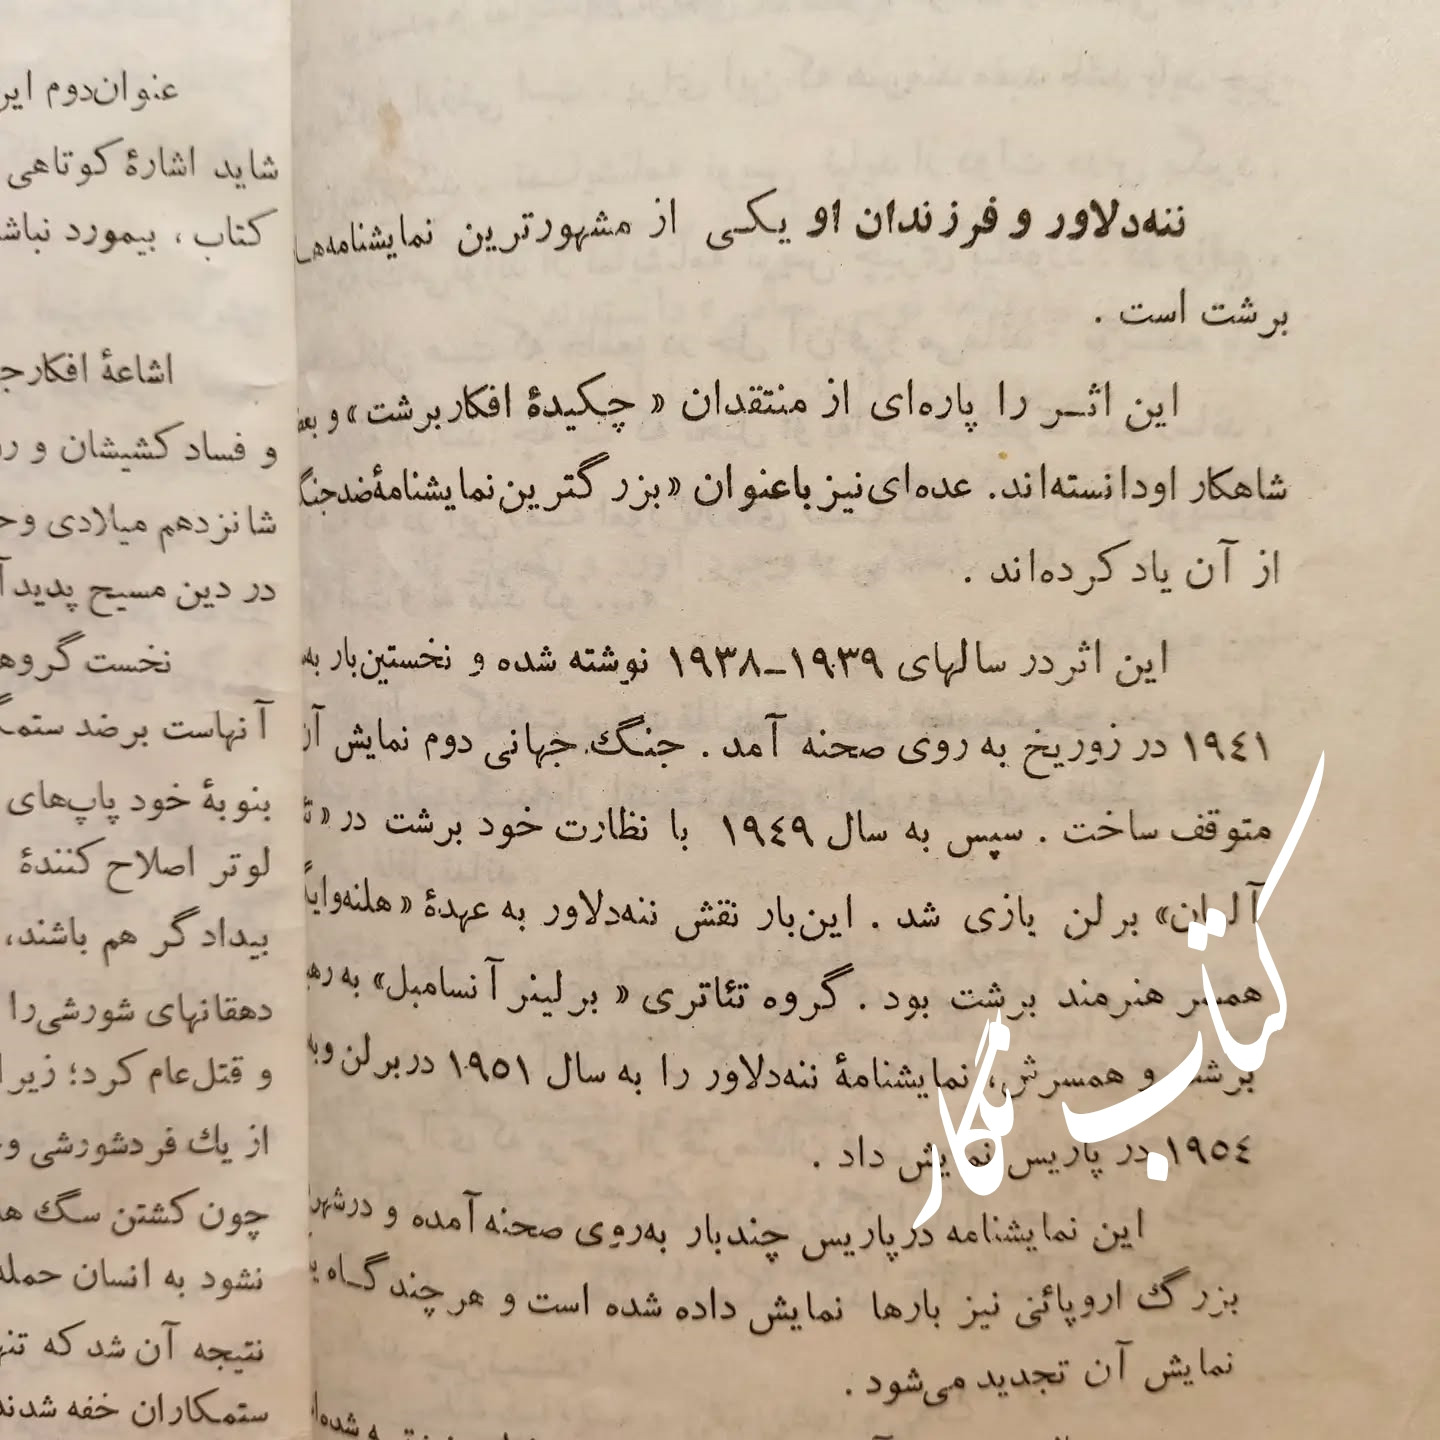 ننه‌دلاور و فرزندان او یکی از مشهورترین نمایشنامه‌ها
برشت است .
این اثر را پاره‌ای از منتقدان « چکیدهٔ افکار برشت » و
شاهکار او دانسته‌اند. عده‌ای نیز باعنوان «بزرگترین نمایشنامهٔ ضدجنگ
از آن یاد کرده‌اند .
این اثر در سالهای ۱۹۳۹ـ۱۹۳۸ نوشته شده و نخستین‌بار
۱۹٤۱ در زوریخ به روی صحنه آمد . جنگ جهانی دوم نمایش
متوقف ساخت . سپس به سال ۱۹٤۹ با نظارت خود برشت در «
آلمان» برلن بازی شد . این‌بار نقش ننه‌دلاور به عهدهٔ « هلنه
همسر هنرمند برشت بود . گروه تئاتری « برلینر آنسامبل» به
برشت و همسرش، نمایشنامهٔ ننه‌دلاور را به سال ۱۹٥۱ در برلن و
۱۹٥٤ در پاریس نمایش داد .
این نمایشنامه در پاریس چندبار به‌روی صحنه آمده و در
بزرگ اروپائی نیز بارها نمایش داده شده است و هر چند گاه
نمایش آن تجدید می‌شود .
عنوان‌دوم
شاید اشارهٔ کوتاهی
کتاب ، بیمورد
اشاعهٔ افکار
و فساد کشیشان و
شانزدهم میلادی
در دین مسیح پدید
نخست
آنهاست برضد
بنوبهٔ خود پاپ‌های
لوتر اصلاح کنندهٔ
بیدادگر هم باشند،
دهقانهای شورشی‌را
و قتل‌عام کرد؛
از یك فردشورشی
چون کشتن سگ
نشود به انسان
نتیجه آن شد که
ستمکاران خفه
کتاب نگار